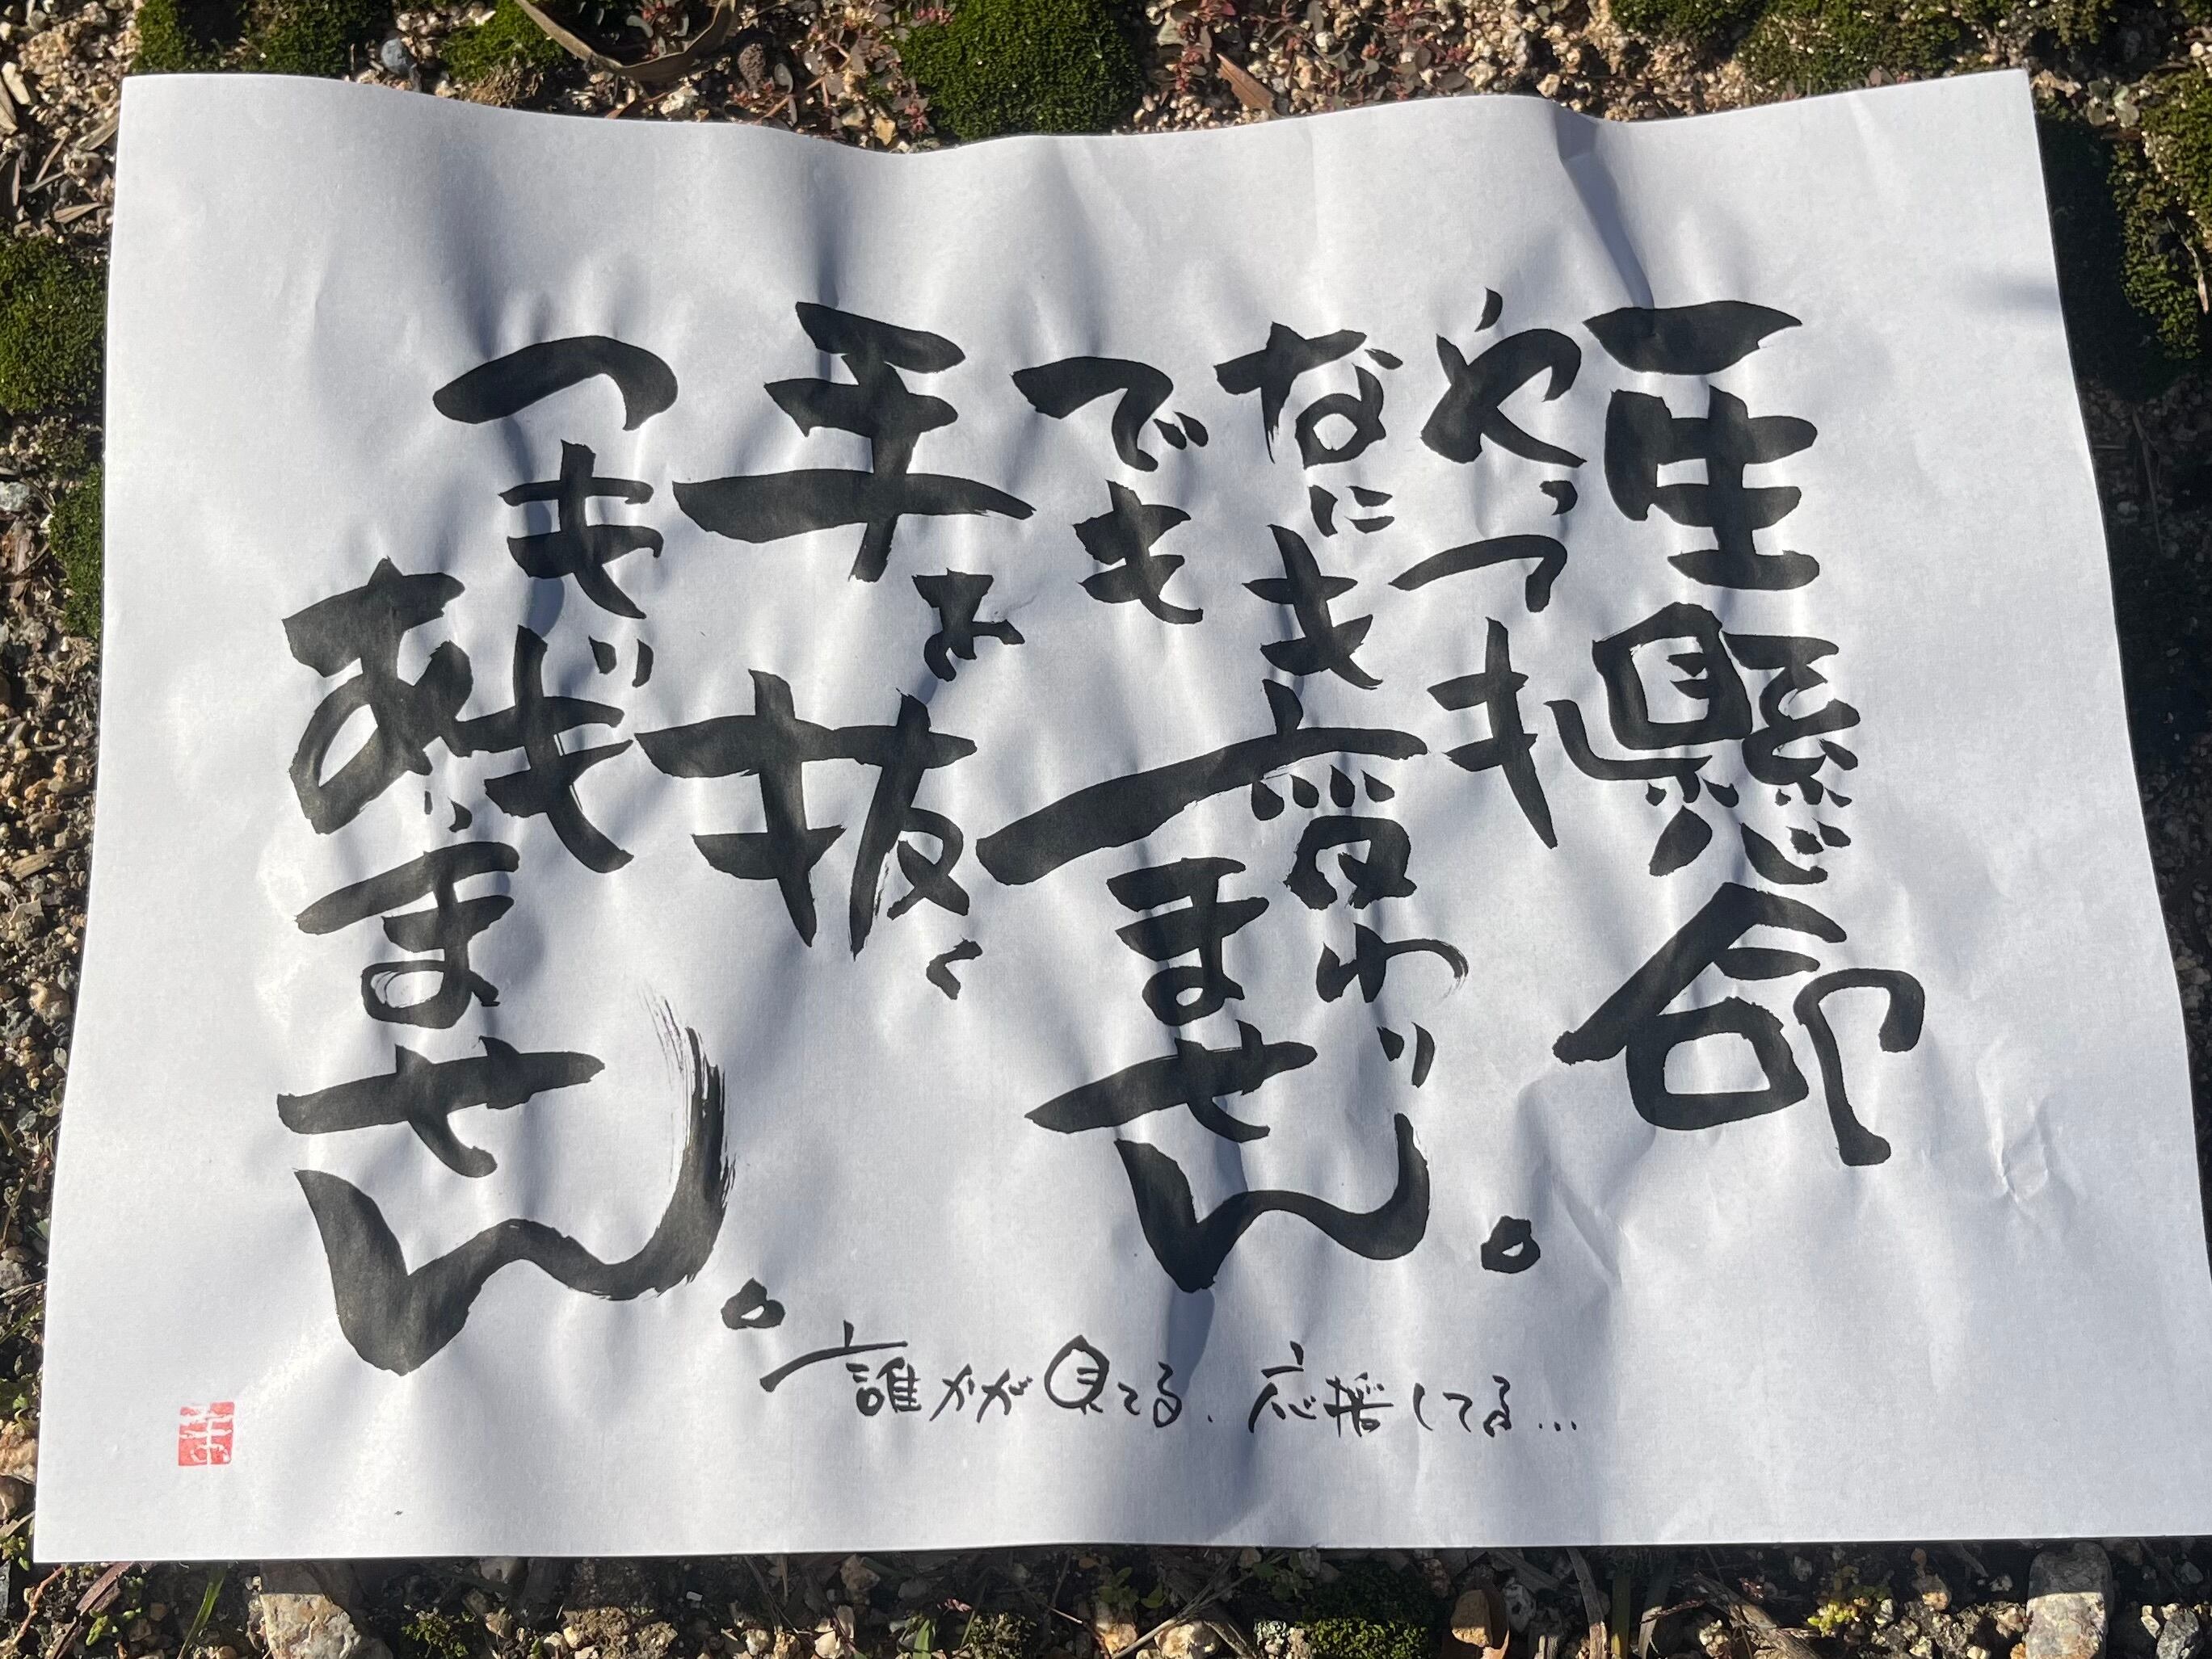 一生懸命
やっても
なにも変わり
ません。
でも
手を抜く
つもりも
ありません。
誰かが見てる、応援してる...